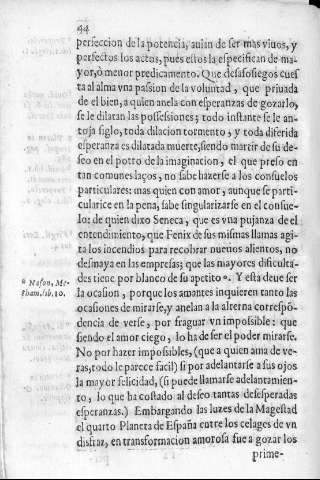 44
perfeccion de la potencia, auian de ser mas viuos, y
perfectos los actos, pues estos la especifican de ma-
yor, ò menor predicamento. Que desasosiegos cues
ta al alma vna passion de la voluntad, que priuada
de el bien, a quien anela con esperanzas de gozarlo,
se le dilatan las possessiones; todo instante se le an-
toja siglo, toda dilacion tormento, y toda diferida
esperanza es dilatada muerte, siendo martir de su de-
seo en el potro de la imaginacion, el que preso en
tan comunes laços, no sabe hazerse a los consuelos
particulares: mas quien con amor, aunque se parti-
cularice en la pena, sabe singularizarse en el consue-
lo: de quien dixo Seneca, que es vna pujança de el
entendimiento, que Fenix de sus mismas llamas agi-
ta los incendios para recobrar nueuos alientos, no
desmaya en las empresas; que las mayores dificulta-
des tiene por blanco de su apetito. Y esta deue ser
la ocasion, porque los amantes inquieren tanto las
ocasiones de mirarse, y anelan a la alterna correspō-
dencia de verse, por fraguar vn impossible: que
siendo el amor ciego, lo ha de ser el poder mirarse.
No por hazer impossibles, (que a quien ama de ve-
ras, todo le parece facil) si por adelantarse a sus ojos
la mayor felicidad, (si puede llamarse adelantamien-
to, lo que ha costado al deseo tantas desesperadas
esperanzas.) Embargando las luzes de la Magestad
el quarto Planeta de España entre los celages de vn
disfraz, en transformacion amorosa fue a gozar los
prime-
Nason, Me-
tham. lib. 10.